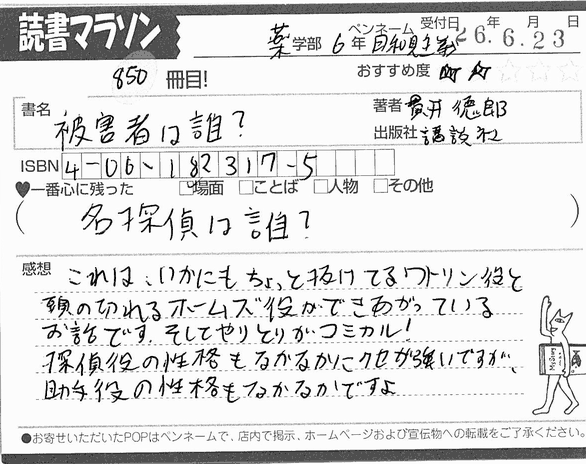 読書マラソン
薬学部 6年 ペンネーム 日和見主義 受付日 26年6月23日
850冊目! おすすめ度 ★★☆☆☆
書名 被害者は誰? 著者 貫井徳郎
出版社 講談社
ISBN 4-06-182317-5
♥一番心に残った □場面 □ことば □人物 □その他
(名探偵は誰?)
感想 これは、いかにもちょっと抜けてるワトソン役と
頭の切れるホームズ役ができあがっている
お話です。そしてやりとりがコミカル!
探偵役の性格もなかなかにクセが強いですが、
助手役の性格もなかなかですよ
●お寄せいただいたPOPはペンネームで、店内で掲示、ホームページおよび宣伝物への転載をご了承ください。